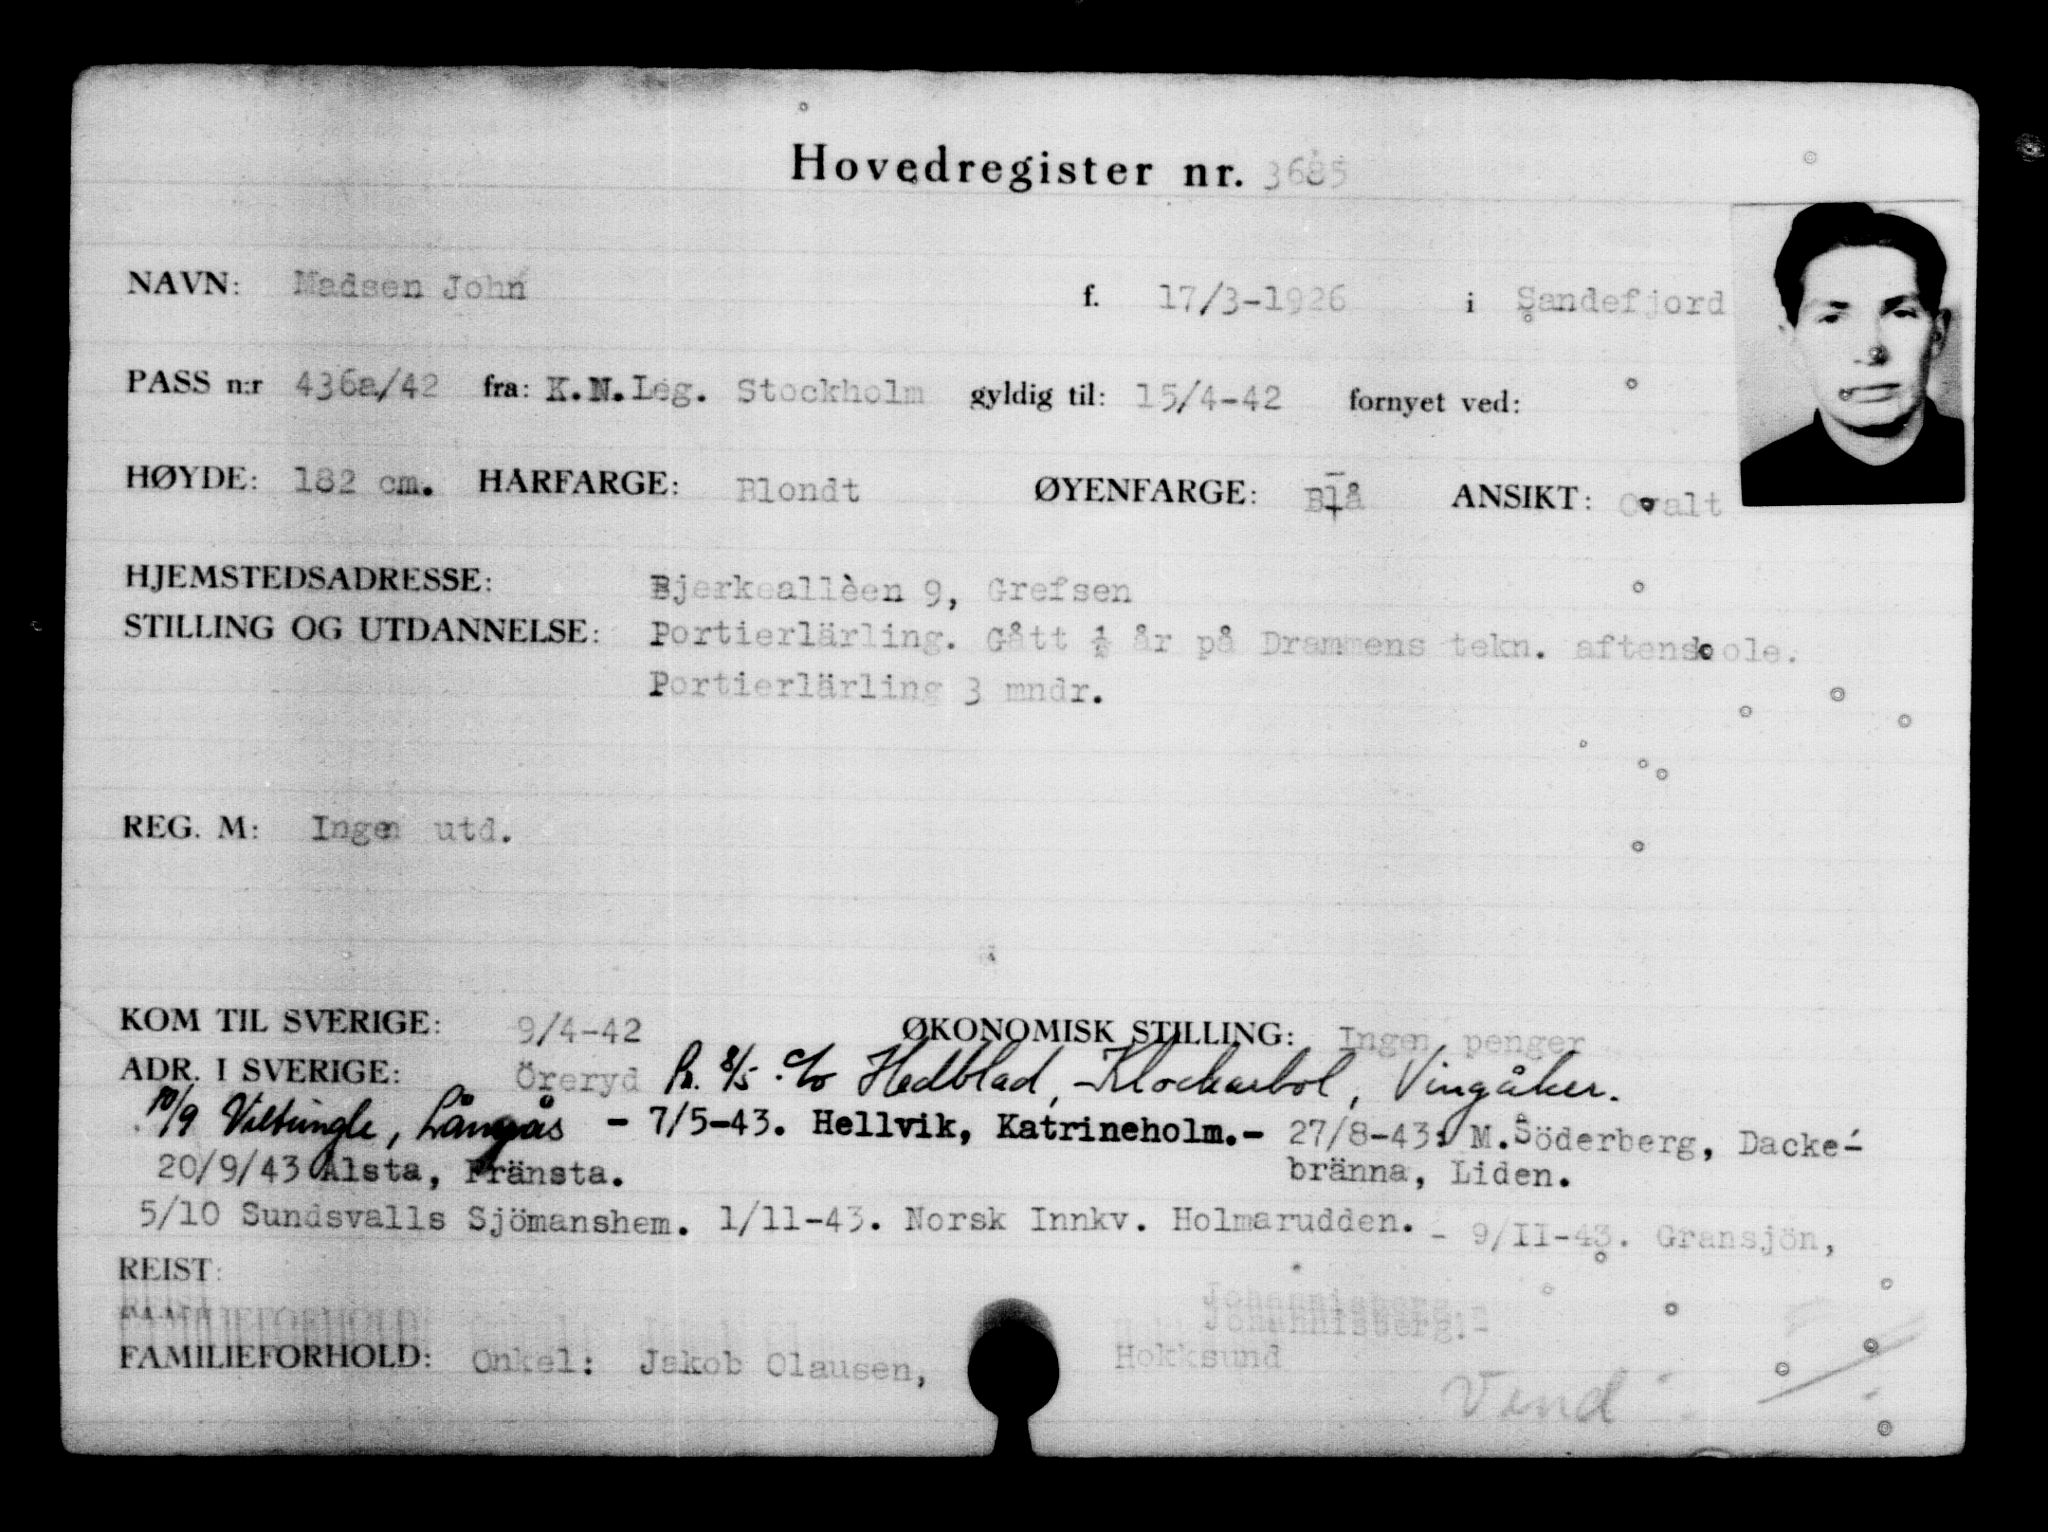 Hovedregister nr. 3685
NAVN: Madsen John f. 17/3-1926 i Sandefjord
PASS n:r 436a/42 fra: K.N.Leg. Stockholm gyldig til: 15/4-42 fornyet ved:
HØYDE: 182 cm. HÅRFARGE: Blondt ØYENFARGE: Blå ANSIKT: Ovalt
HJEMSTEDSADRESSE: Bjerkealléen 9, Grefsen
STILLING OG UTDANNELSE: Portierlärling. Gått ½ år på Drammens tekn. aftenskole.
Portierlärling 3 mndr.
REG. M: Ingen utd.
KOM TIL SVERIGE: 9/4-42 ØKONOMISK STILLING: Ingen penger
ADR. I SVERIGE: Öreryd 8/5 c/o Hedblad, Klockarbol, Vingåker.
10/9 Långås - 7/5-43. Hellvik, Katrineholm.- 27/8-43: M.Söderberg, Dacke-
20/9/43 Alsta, Fränsta. bränna, Liden.
5/10 Sundsvalls Sjömanshem. 1/11-43. Norsk Innkv. Holmarudden. - 9/II-43. Gransjön,
REIST: Johannisberg.-
FAMILIEFORHOLD: Onkel: Jakob Olausen, Hokksund
Vend